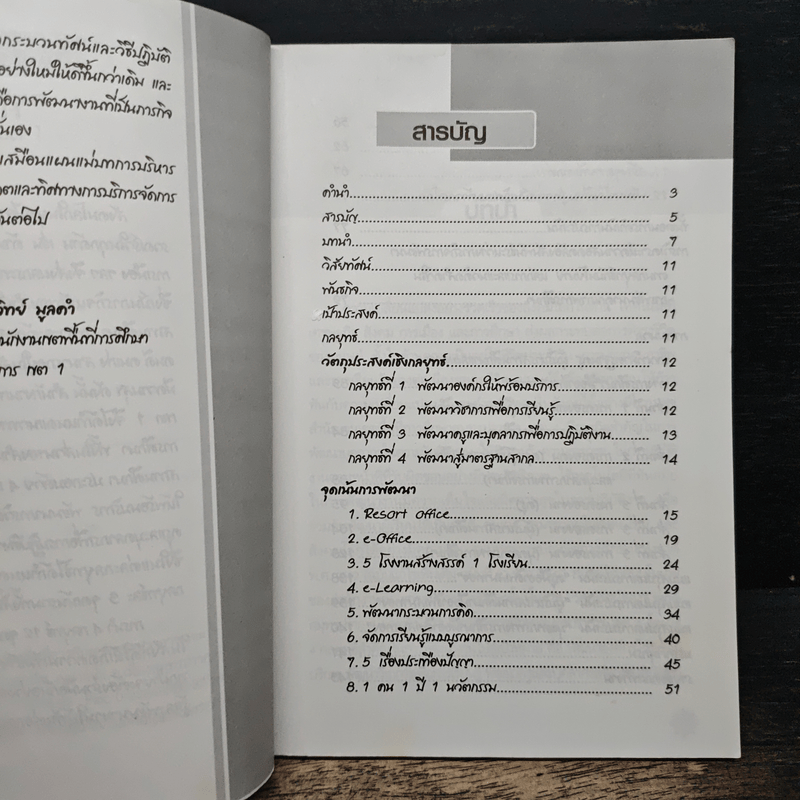 กระบวนทัศน์และวิธีปฏิบัติ
อย่างใหม่ให้ดีขึ้นกว่าเดิม และ
คือการพัฒนางานที่เป็นภารกิจ
นั่นเอง
เสมือนแผนแม่บทการบริหาร
และทิศทางการบริการจัดการ
กันต่อไป
มูลคำ
นักงานเขตพื้นที่การศึกษา
การ เขต 1
สารบัญ
คำนำ 3
สารบัญ 5
บทนำ 7
วิสัยทัศน์ 11
พันธกิจ 11
เป้าประสงค์ 11
กลยุทธ์ 11
วัตถุประสงค์เชิงกลยุทธ์ 12
กลยุทธ์ที่ 1 พัฒนาองค์กรให้พร้อมบริการ 12
กลยุทธ์ที่ 2 พัฒนาวิชาการเพื่อการเรียนรู้ 12
กลยุทธ์ที่ 3 พัฒนาครูและบุคลากรเพื่อการปฏิบัติงาน 13
กลยุทธ์ที่ 4 พัฒนาสู่มาตรฐานสากล 14
จุดเน้นการพัฒนา
1. Resort Office 15
2. e-Office 19
3. 5 โรงงานสร้างสรรค์ 1 โรงเรียน 24
4. e-Learning 29
5. พัฒนากระบวนการคิด 34
6. จัดการเรียนรู้แบบบูรณาการ 40
7. 5 เรื่องประเทืองปัญญา 45
8. 1 คน 1 ปี 1 นวัตกรรม 51